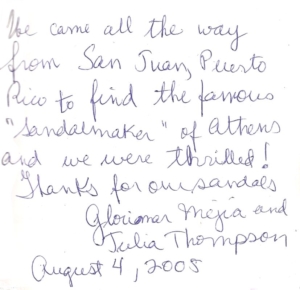 We came all the way
from San Juan, Puerto
Rico to find the famous
"Sandalmaker" of Athens
and we were thrilled!
Thanks for our sandals
Gloriomar Mejia and
Julia Thompson
August 4, 2005